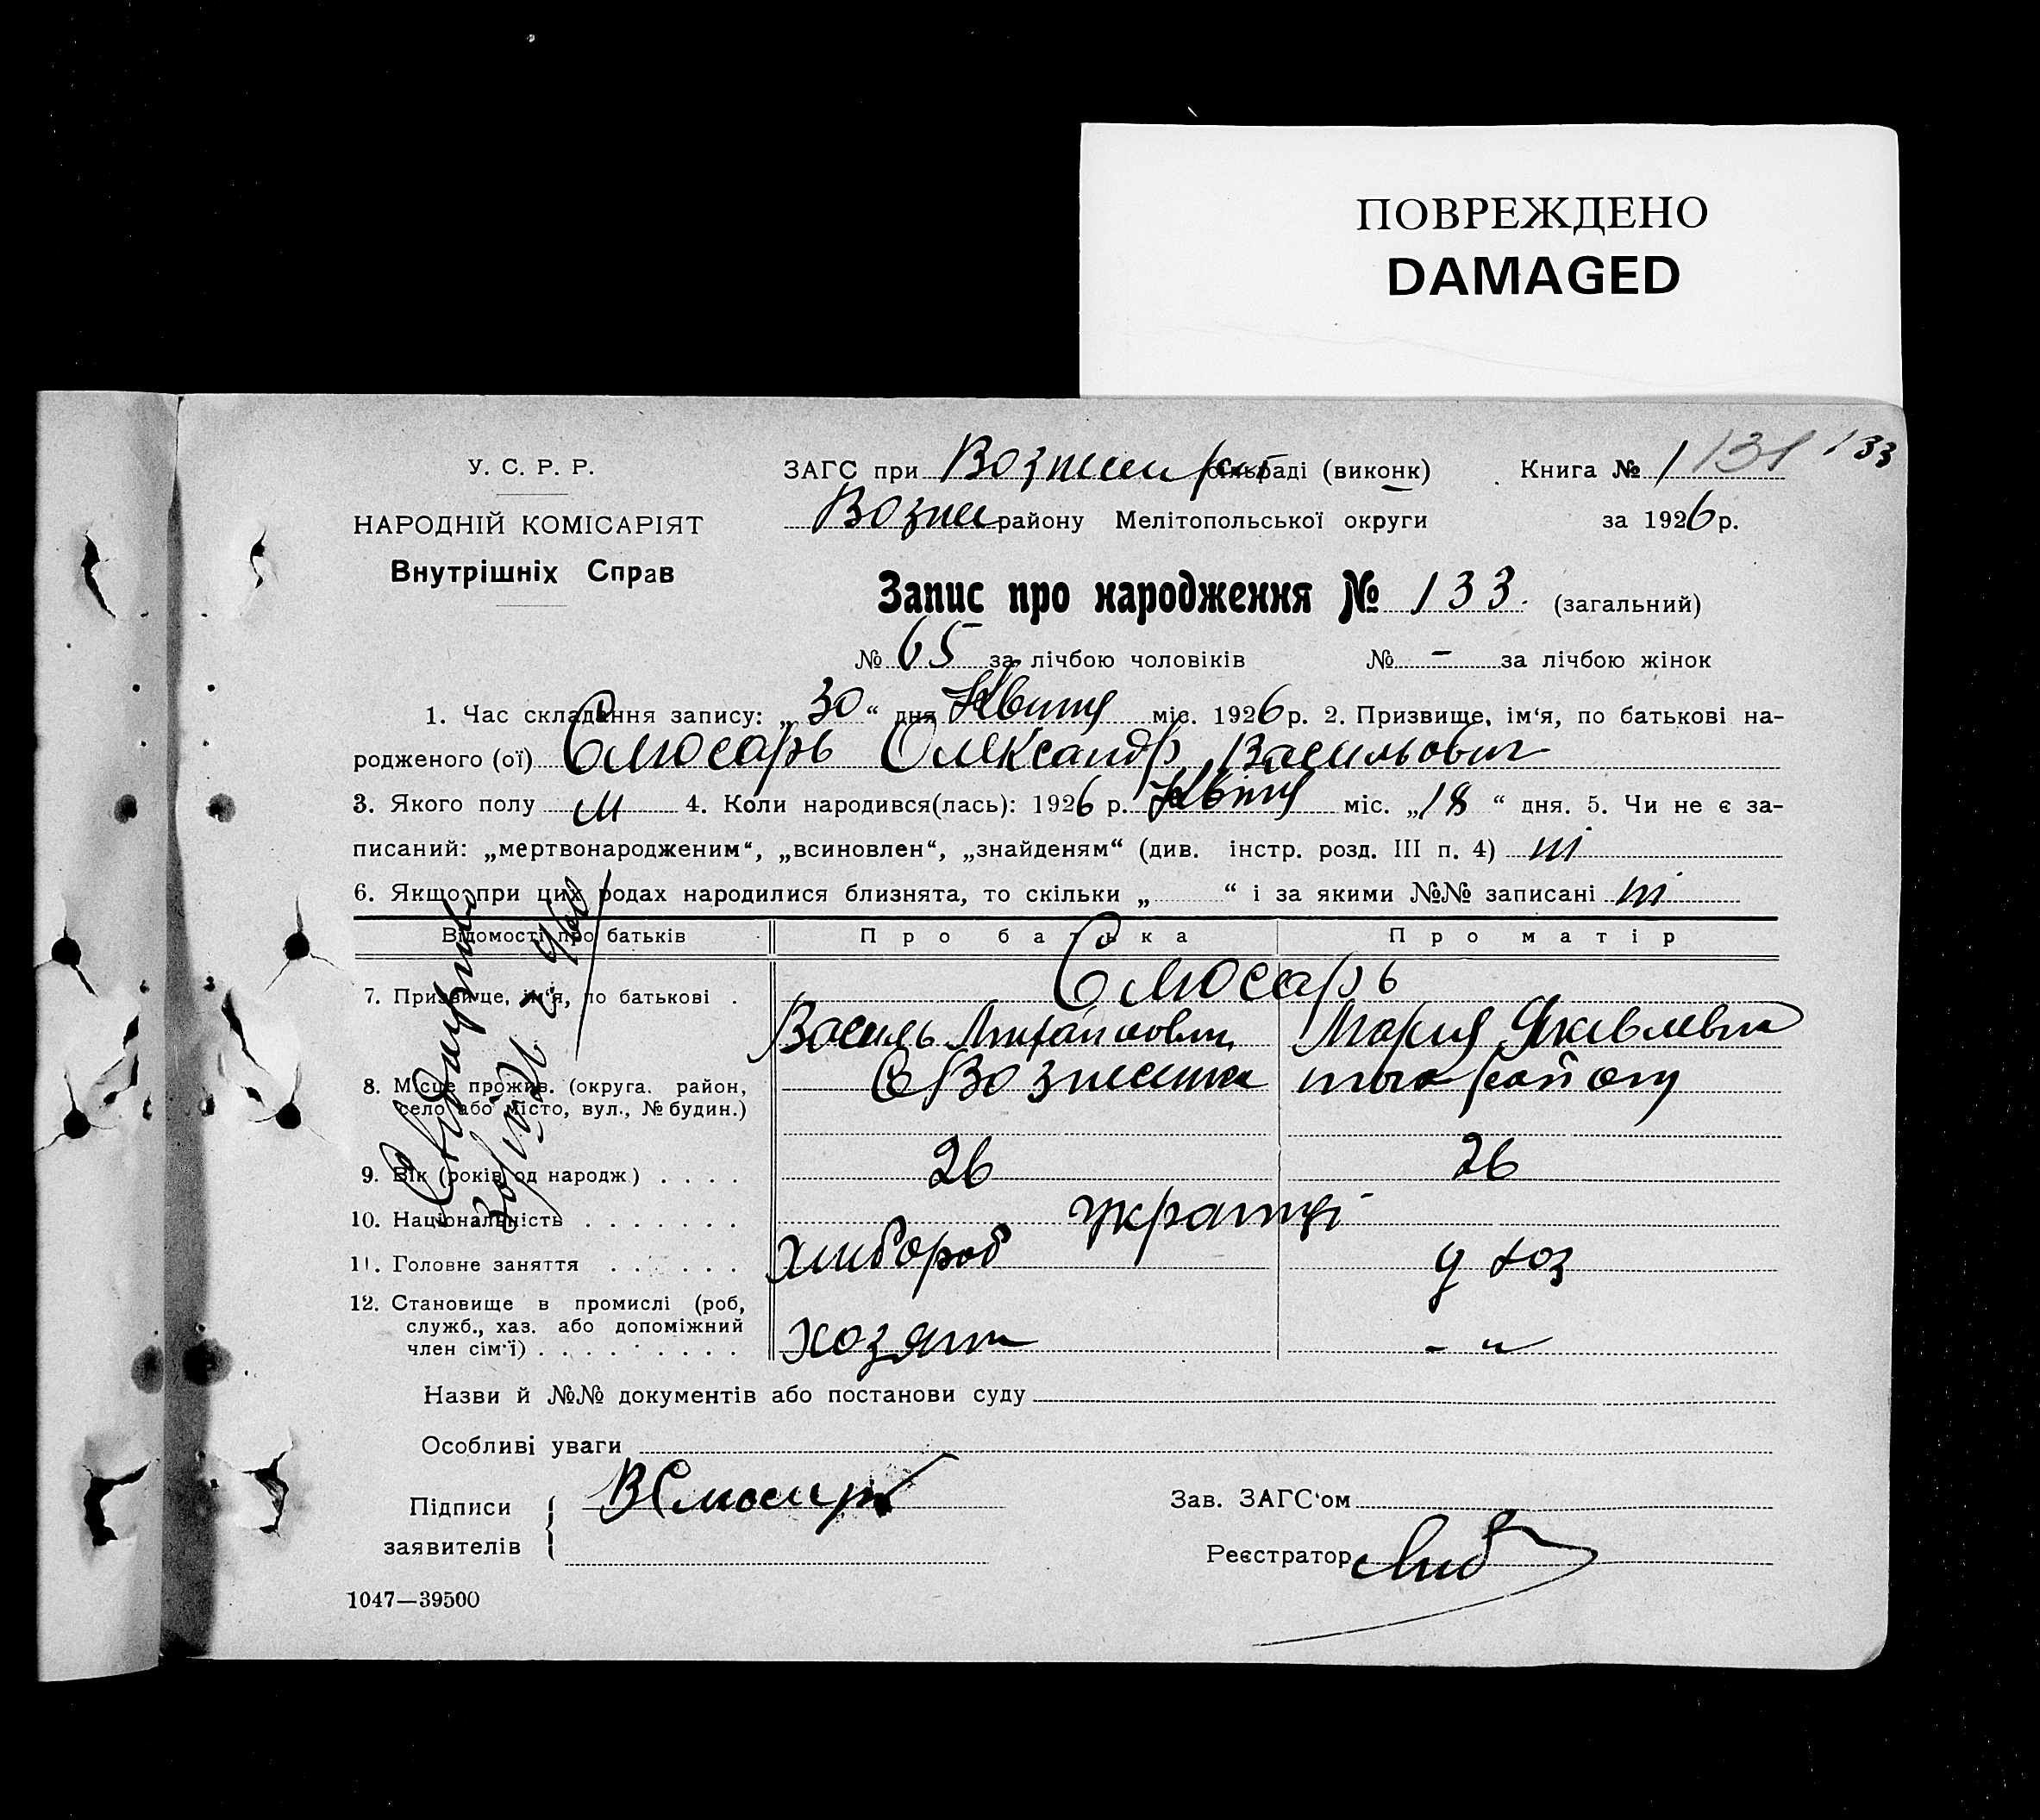 ПОВРЕЖДЕНО
DAMAGED
У. С. Р. Р.
НАРОДНІЙ КОМІСАРІЯТ
Внутрішніх Справ
ЗАГС при сільраді (виконк)
Возне району Мелітопольської округи
Книга № 1 131 133
за 1926 р.
Запис про народження № 133. (загальний)
№ 65 за лічбою чоловіків № - за лічбою жінок
1. Час складання запису: „30“ дня Квітня міс. 1926 р. 2. Призвище, ім‘я, по батькові на-
родженого (ої) Слюсарь Олександр Васильович
3. Якого полу м 4. Коли народився(лась): 1926 р. Квітня міс. „18“ дня. 5. Чи не є за-
писаний: „мертвонародженим“, „всиновлен“, „знайденям“ (див. інстр. розд. III п. 4) ні
6. Якщо при цих родах народилися близнята, то скільки „ “ і за якими №№ записані ні
Відомості про батьків Про батька Про матір
Слюсарь
7. Призвище, ім‘я, по батькові .
Василь Михайлович Мария Яковлевна
8. Місце прожив. (округа. район,
село або місто, вул., № будин.)
С Вознесенка района
9. Вік (років од народж) . . . . 26 26
10. Національність . . . . . . . українці
11. Головне заняття . . . . . . хлібороб д хоз
12. Становище в промислі (роб,
служб., хаз. або допоміжний
член сім‘ї) . . . . . . . . . хозяин - "
Назви й №№ документів або постанови суду
Особливі уваги
Підписи
заявителів
ВСлюсарь
Зав. ЗАГС‘ом
Реєстратор
1047—39500